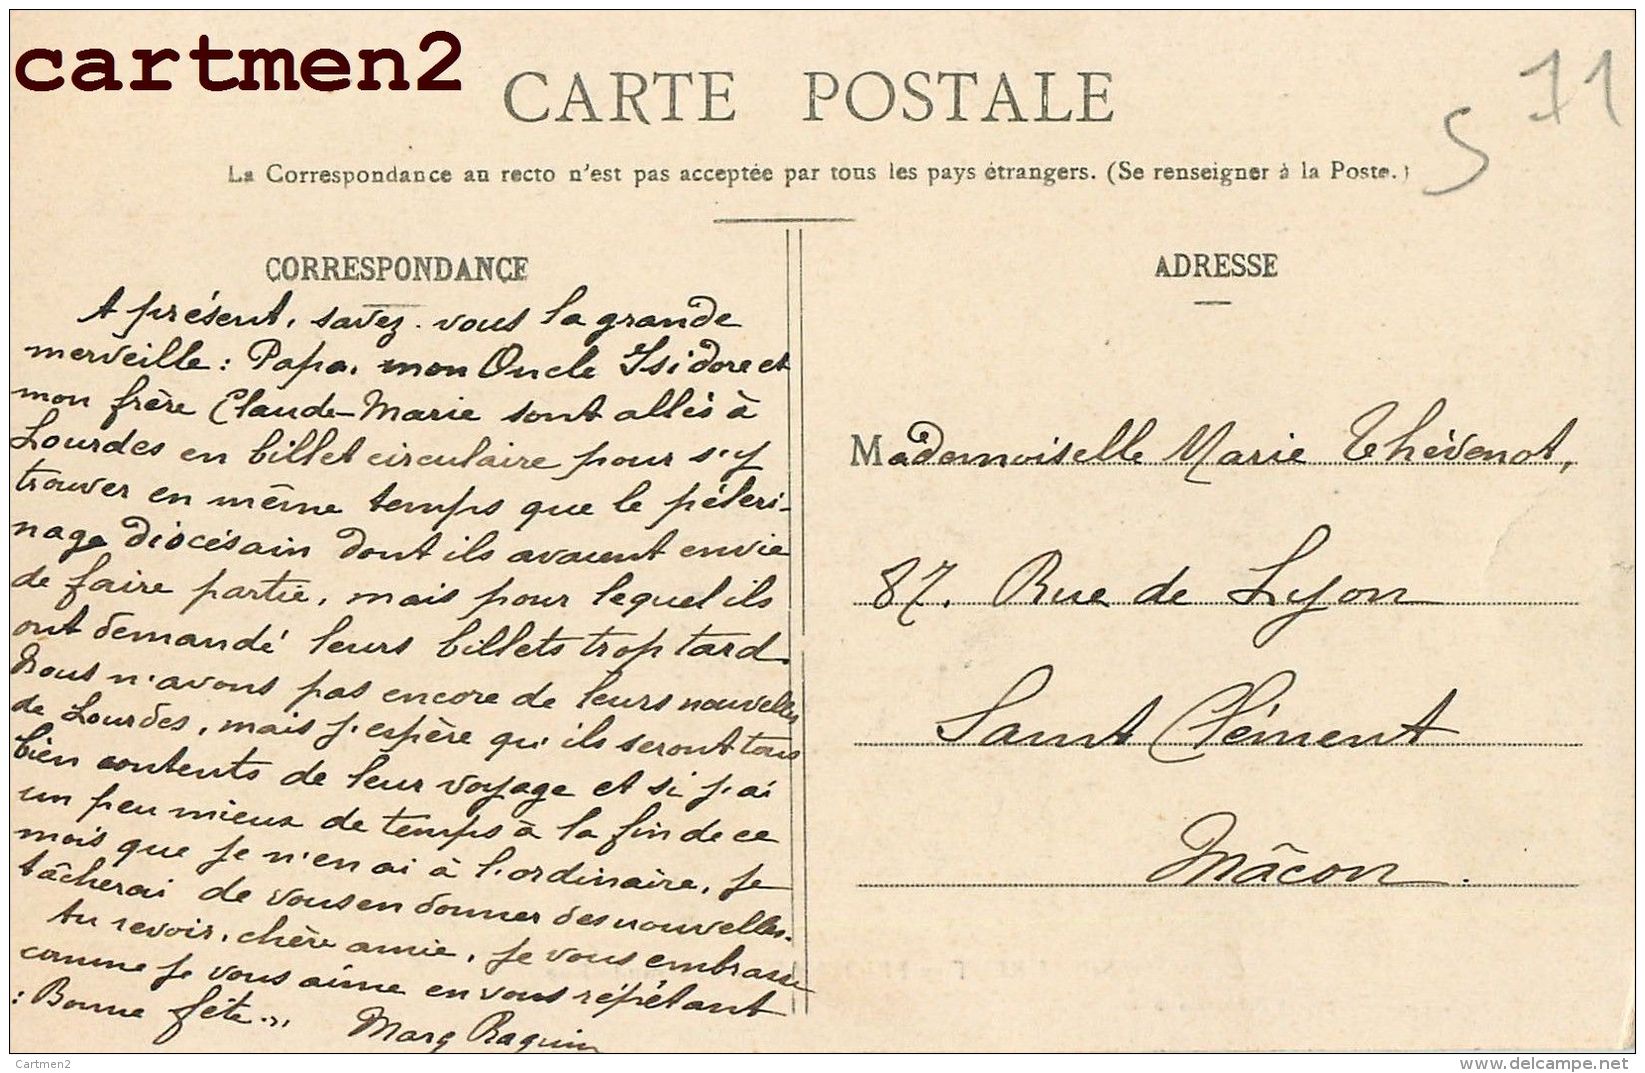 cartmen2
CARTE POSTALE
71
5
La Correspondance au recto n'est pas acceptée par tous les pays étrangers. (Se renseigner à la Poste.)
CORRESPONDANCE
A présent, savez-vous la grande
merveille : Papa, mon Oncle Isidore et
mon frère Claude-Marie sont allés à
Lourdes en billet circulaire pour s'y
trouver en même temps que le pèleri-
nage diocésain dont ils avaient envie
de faire partie, mais pour lequel ils
ont demandé leurs billets trop tard.
Nous n'avons pas encore de leurs nouvelles
de Lourdes, mais j'espère qu'ils seront tous
bien contents de leur voyage et si j'ai
un peu mieux de temps à la fin de ce
mois que je n'en ai à l'ordinaire, je
tâcherai de vous en donner des nouvelles.
Au revoir, chère amie, je vous embrasse
comme je vous aime en vous répétant
: Bonne fête..,
Marg Raguin
ADRESSE
Mademoiselle Marie Thévenot,
87, Rue de Lyon
Saint Clément
Mâcon.
Cartmen2
www.delcampe.net